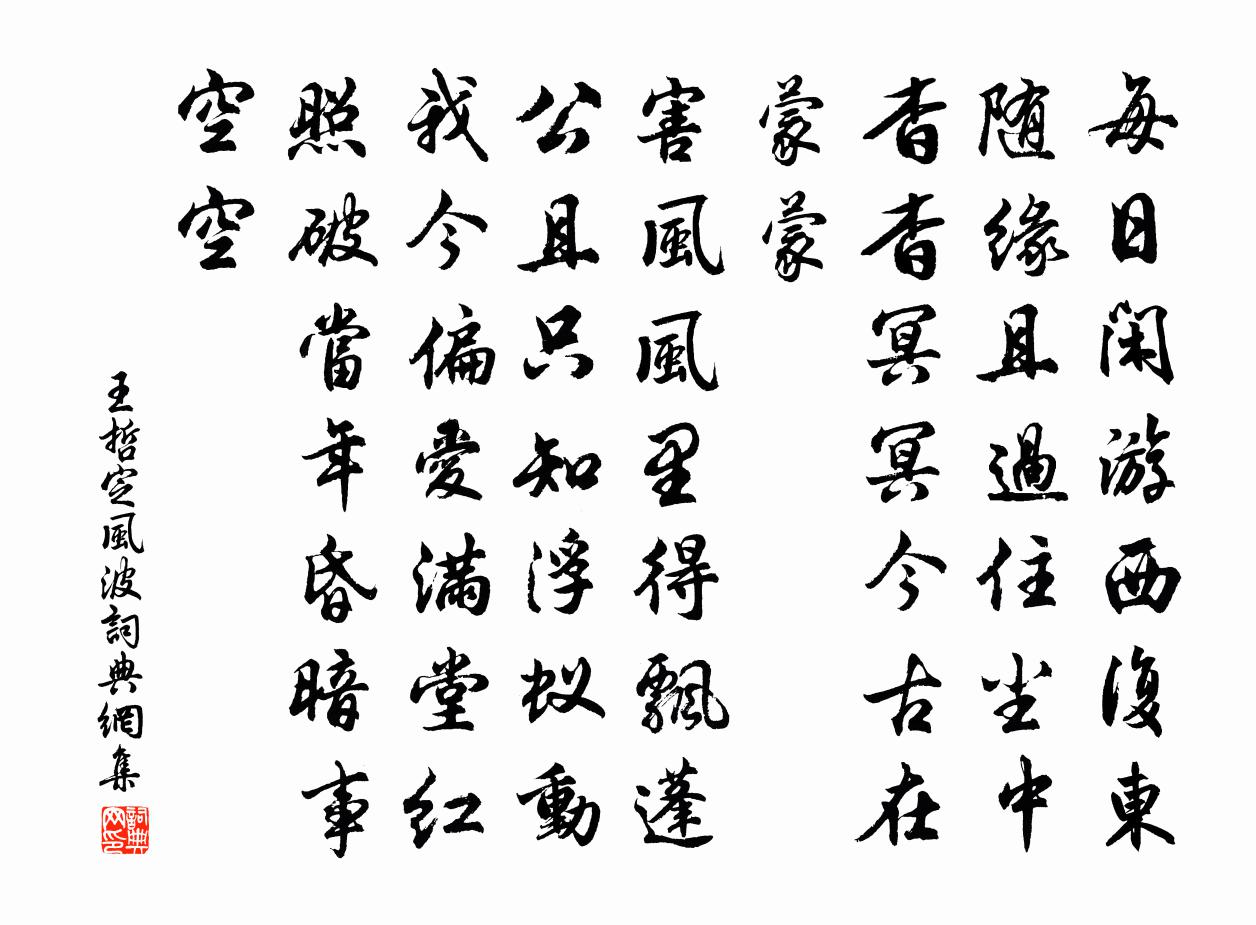 每日閑游西復東
随緣且過住尘中
杳杳冥冥今古在
蒙蒙
害風風里得飄蓬
公且只知浮蚁動
我今偏愛滿堂紅
照破當年昏暗事
空空
王哲定風波詞典網集
詞典网印